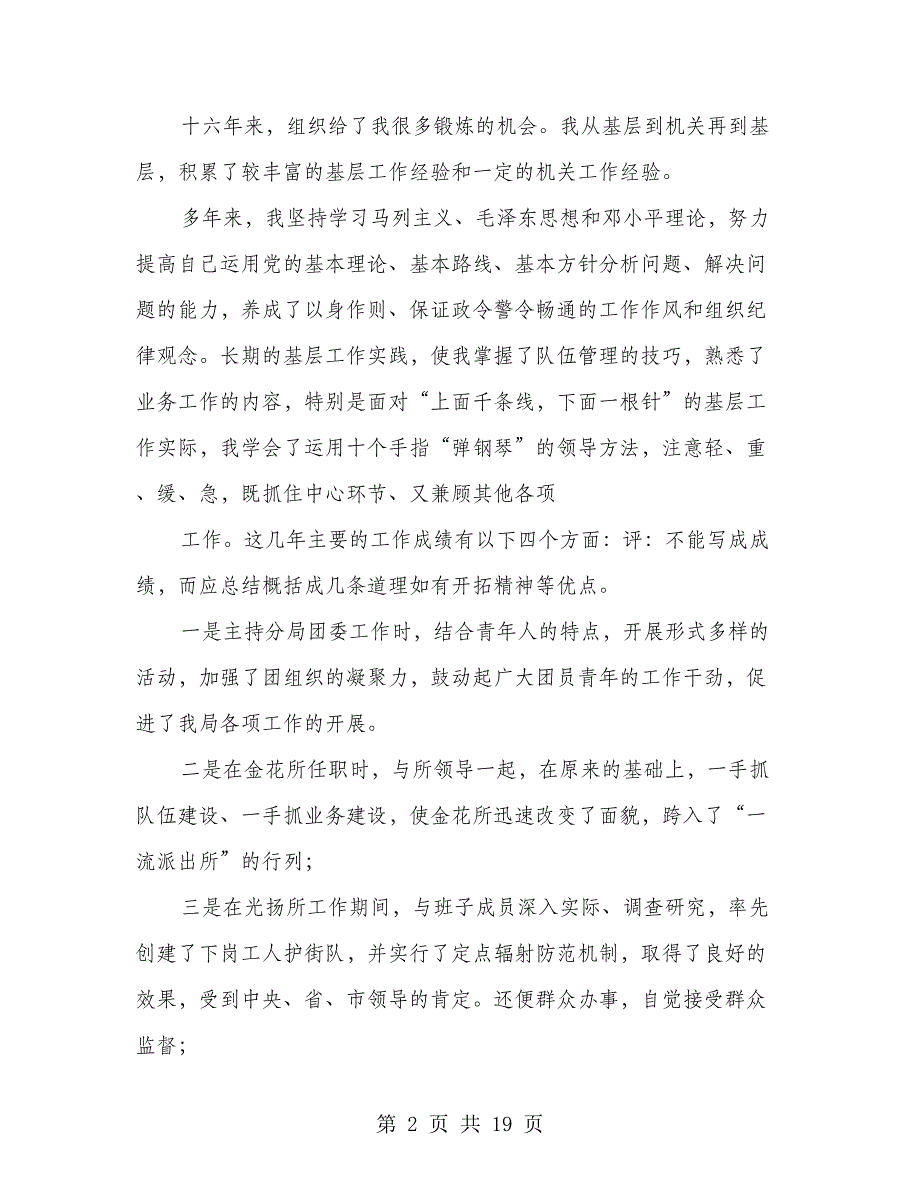 十六年来，组织给了我很多锻炼的机会。我从基层到机关再到基
层，积累了较丰富的基层工作经验和一定的机关工作经验。
多年来，我坚持学习马列主义、毛泽东思想和邓小平理论，努力
提高自己运用党的基本理论、基本路线、基本方针分析问题、解决问
题的能力，养成了以身作则、保证政令警令畅通的工作作风和组织纪
律观念。长期的基层工作实践，使我掌握了队伍管理的技巧，熟悉了
业务工作的内容，特别是面对“上面千条线，下面一根针”的基层工
作实际，我学会了运用十个手指“弹钢琴”的领导方法，注意轻、重
、缓、急，既抓住中心环节、又兼顾其他各项
工作。这几年主要的工作成绩有以下四个方面：评：不能写成成
绩，而应总结概括成几条道理如有开拓精神等优点。
一是主持分局团委工作时，结合青年人的特点，开展形式多样的
活动，加强了团组织的凝聚力，鼓动起广大团员青年的工作干劲，促
进了我局各项工作的开展。
二是在金花所任职时，与所领导一起，在原来的基础上，一手抓
队伍建设、一手抓业务建设，使金花所迅速改变了面貌，跨入了“一
流派出所”的行列；
三是在光扬所工作期间，与班子成员深入实际、调查研究，率先
创建了下岗工人护街队，并实行了定点辐射防范机制，取得了良好的
效果，受到中央、省、市领导的肯定。还便群众办事，自觉接受群众
监督；
第 2 页 共 19 页